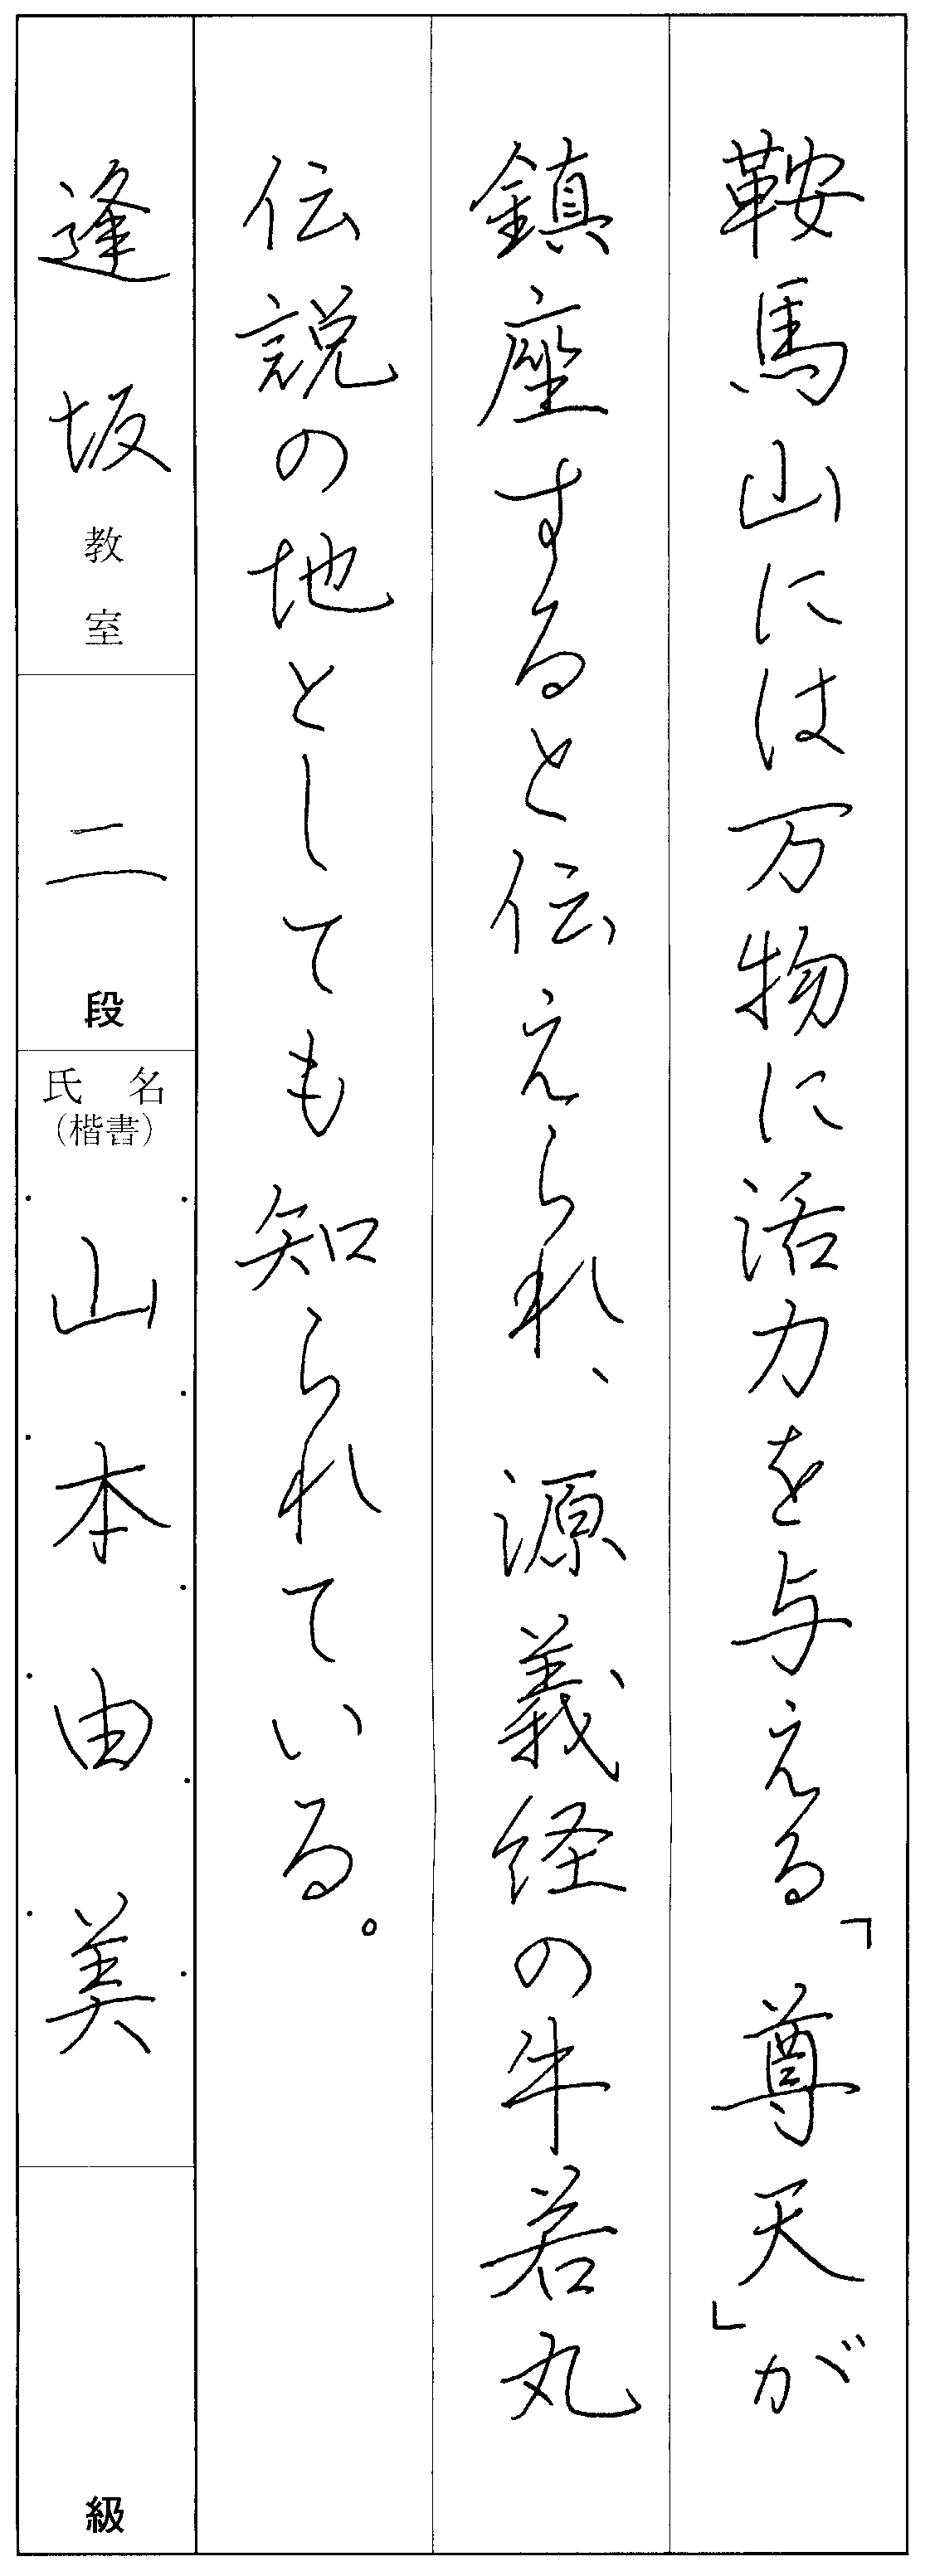 鞍馬山には万物に活力を与える「尊天」が
鎮座すると伝えられ、源義経の牛若丸
伝説の地としても知られている。
逢坂教室
二段
氏名
(楷書)
山本由美
級